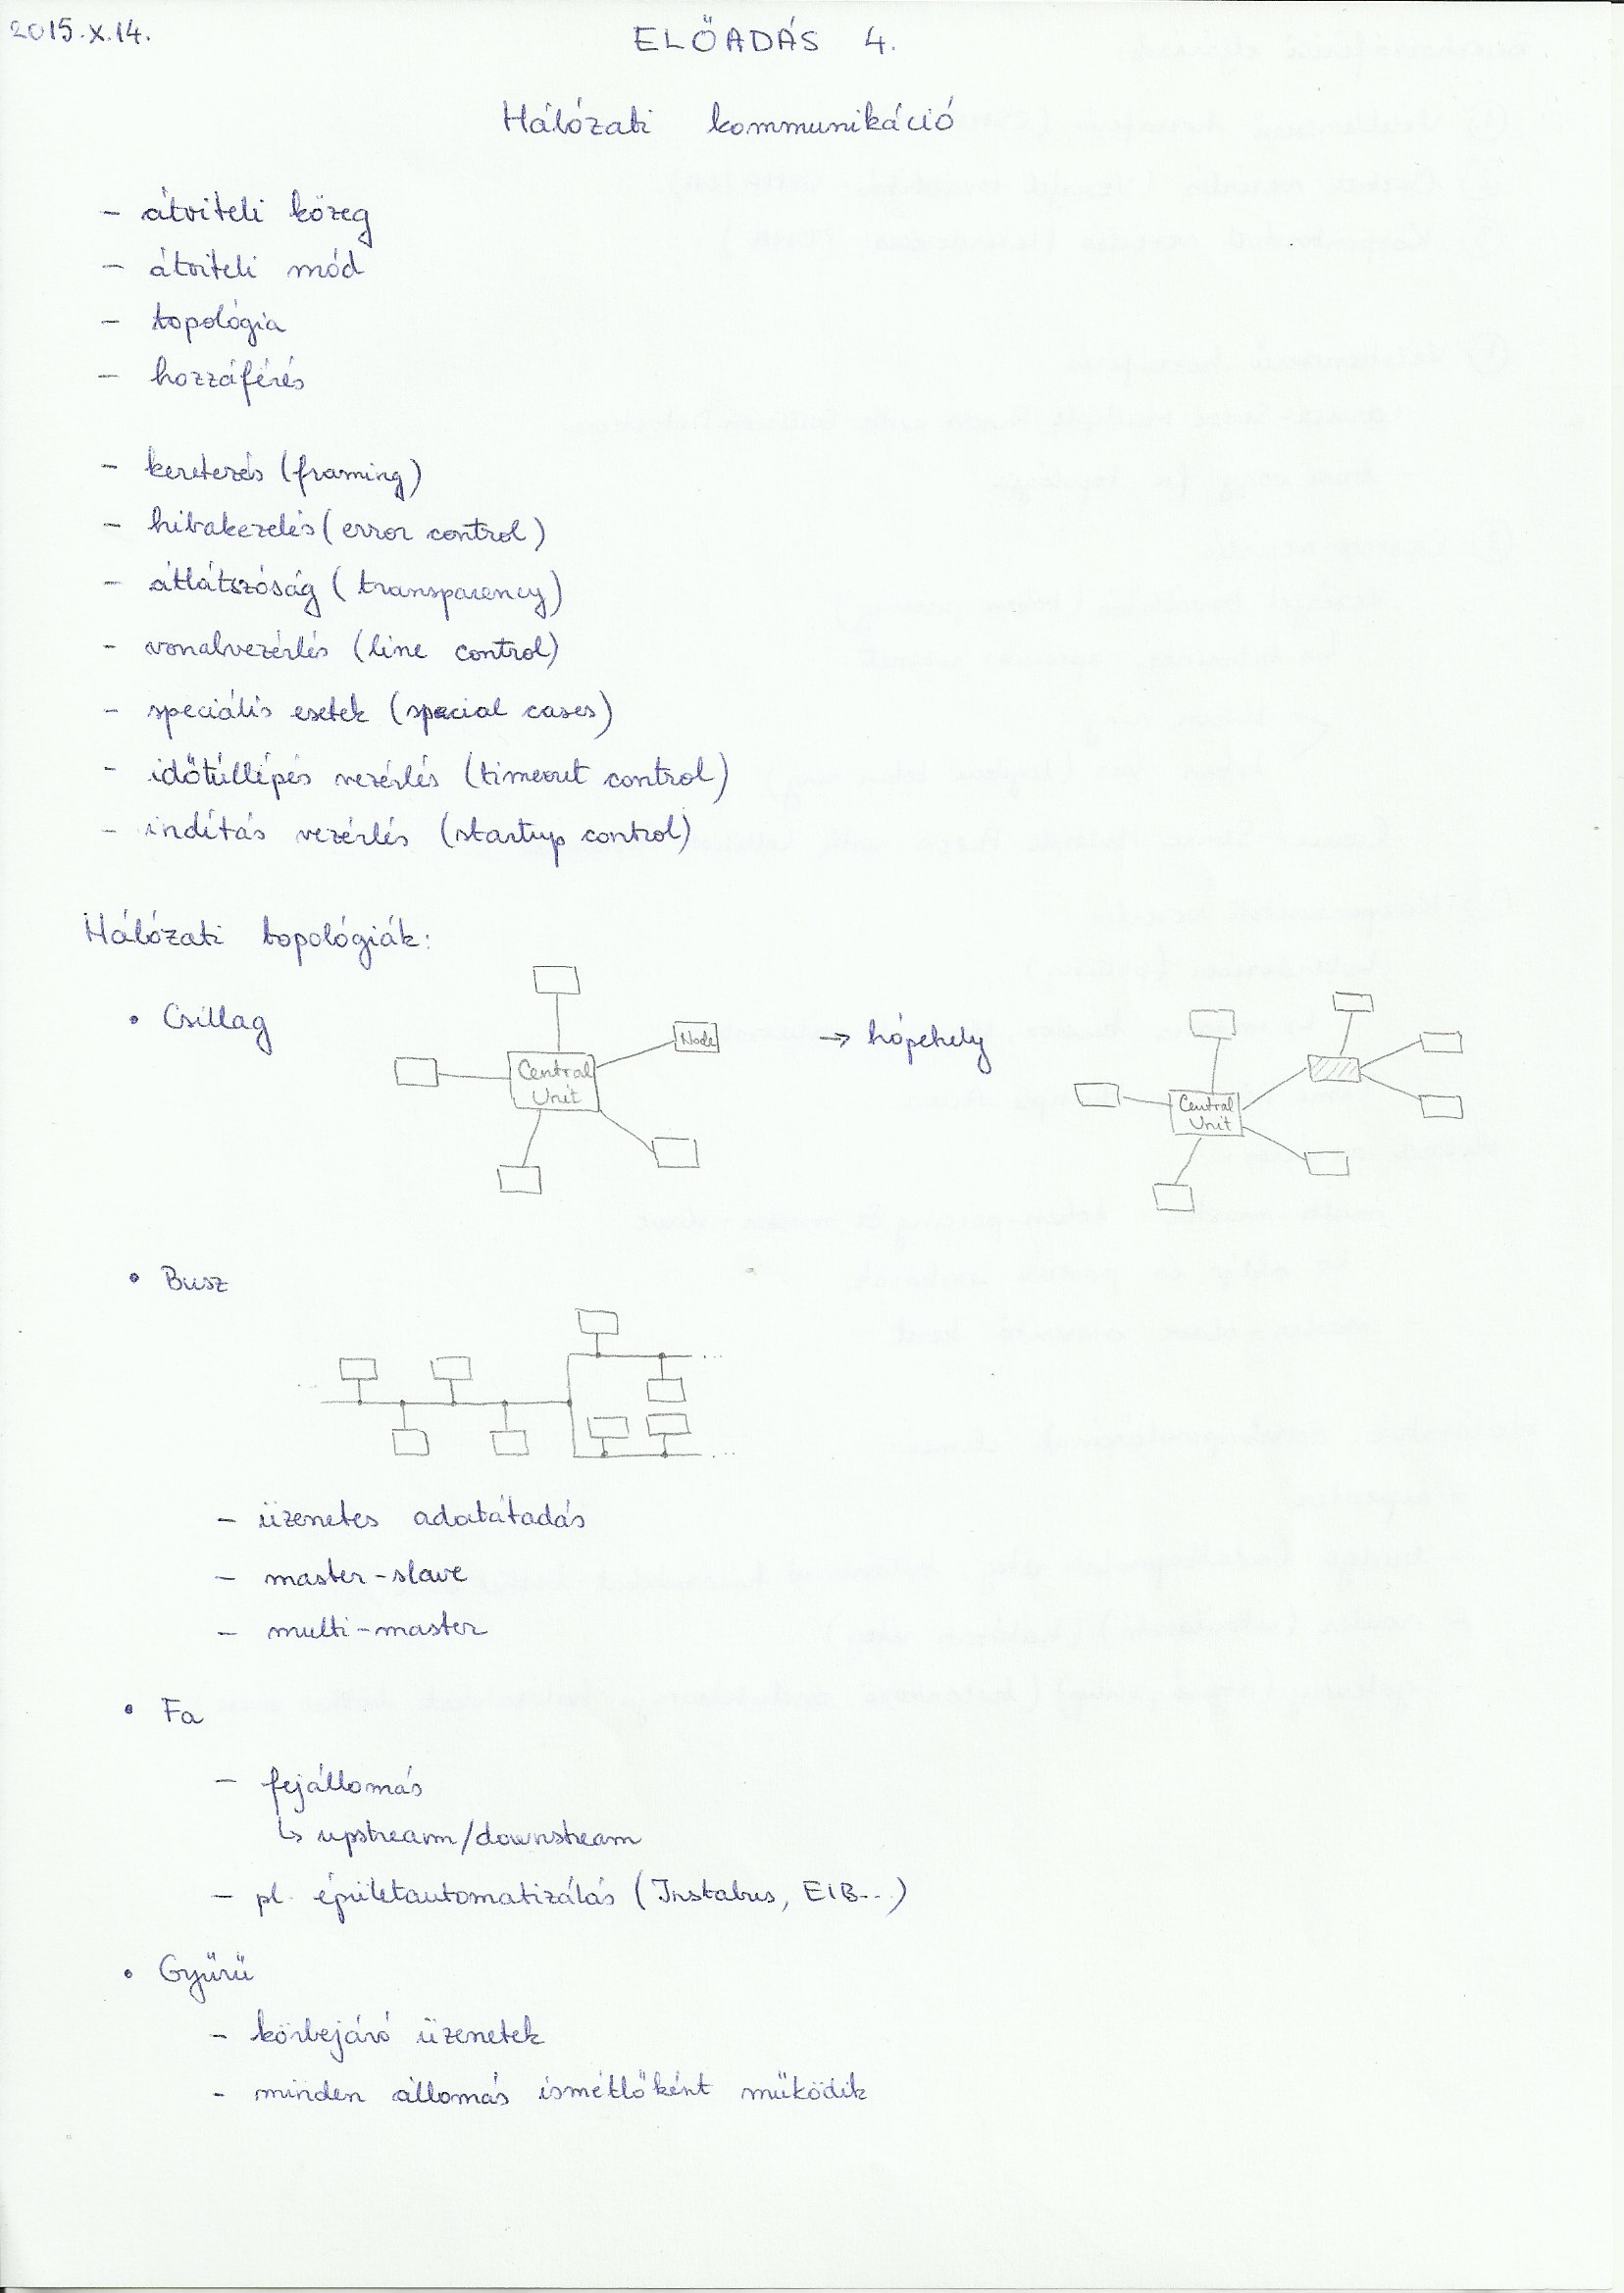 2015.X.14.
ELŐADÁS 4.
Hálózati kommunikáció
- átviteli közeg
- átviteli mód
- topológia
- hozzáférés
- keretezés (framing)
- hibakezelés (error control)
- átlátszóság (transparency)
- vonalvezérlés (line control)
- speciális esetek (special cases)
- időtúllépés vezérlés (timeout control)
- indítás vezérlés (startup control)
Hálózati topológiák:
• Csillag
Node
Central
Unit
→ hópehely
Central
Unit
• Busz
- üzenetes adatátadás
- master-slave
- multi-master
• Fa
- fejállomás
↳ upstream/downstream
- pl. épületautomatizálás (Instabus, EIB...)
• Gyűrű
- körbejáró üzenetek
- minden állomás ismétlőként működik